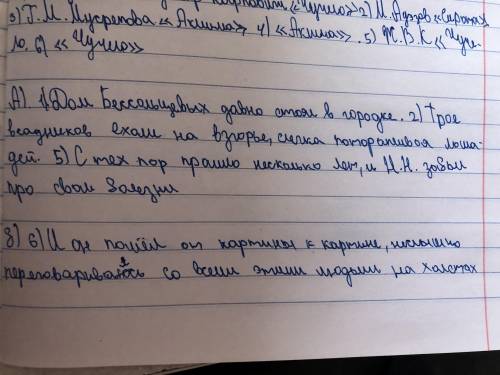 3) Г. М. Мусрепова. «Аклима» 4) «Аклима». 5) Ж. В. К «Чуче-
ло. 6) «Чучело»
А). 1) Дом Бессольцевых давно стоял в городке. 2) Трое
всадников ехали на взгорье, слегка поторапливая лоша-
дей. 5) С тех пор прошло несколько лет, и Н.Н. забыл
про свои болезни
З) 6) И он пошёл от картины к картине, неслышно
переговариваясь со всеми этими людьми на холстах